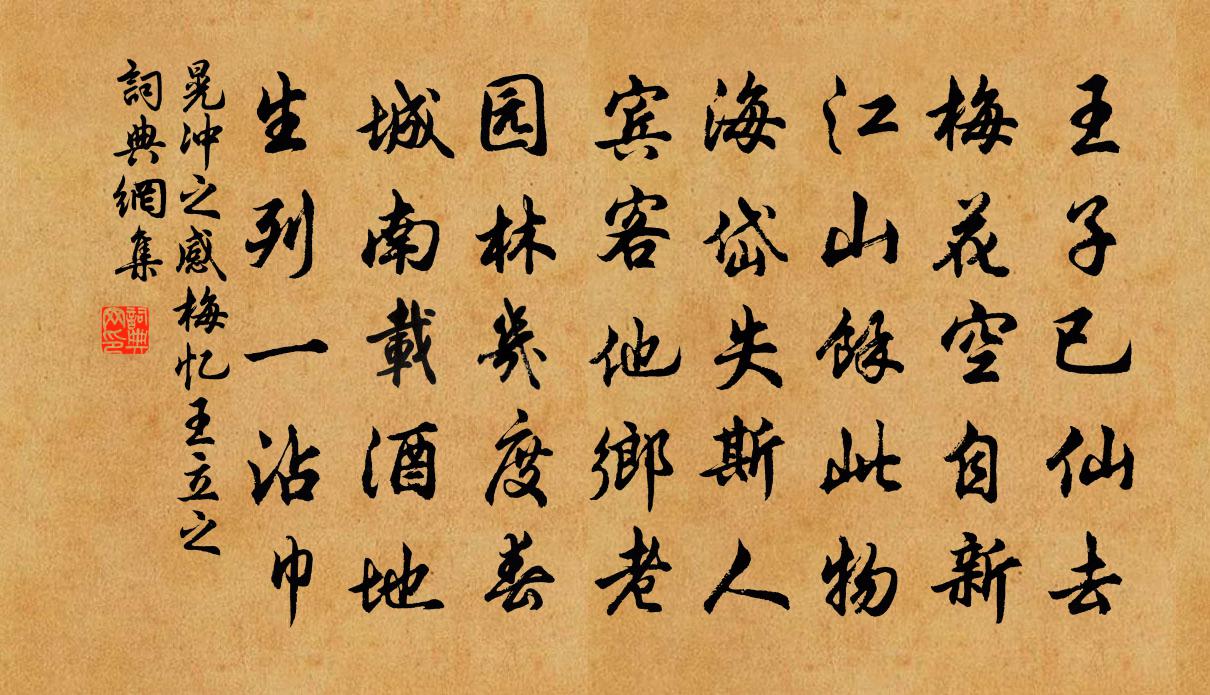 王子已仙去
梅花空自新
江山餘此物
海岱失斯人
宾客他鄉老
园林幾度春
城南載酒地
生列一沾巾
晃冲之感梅忆王立之
詞典網集
詞典网印